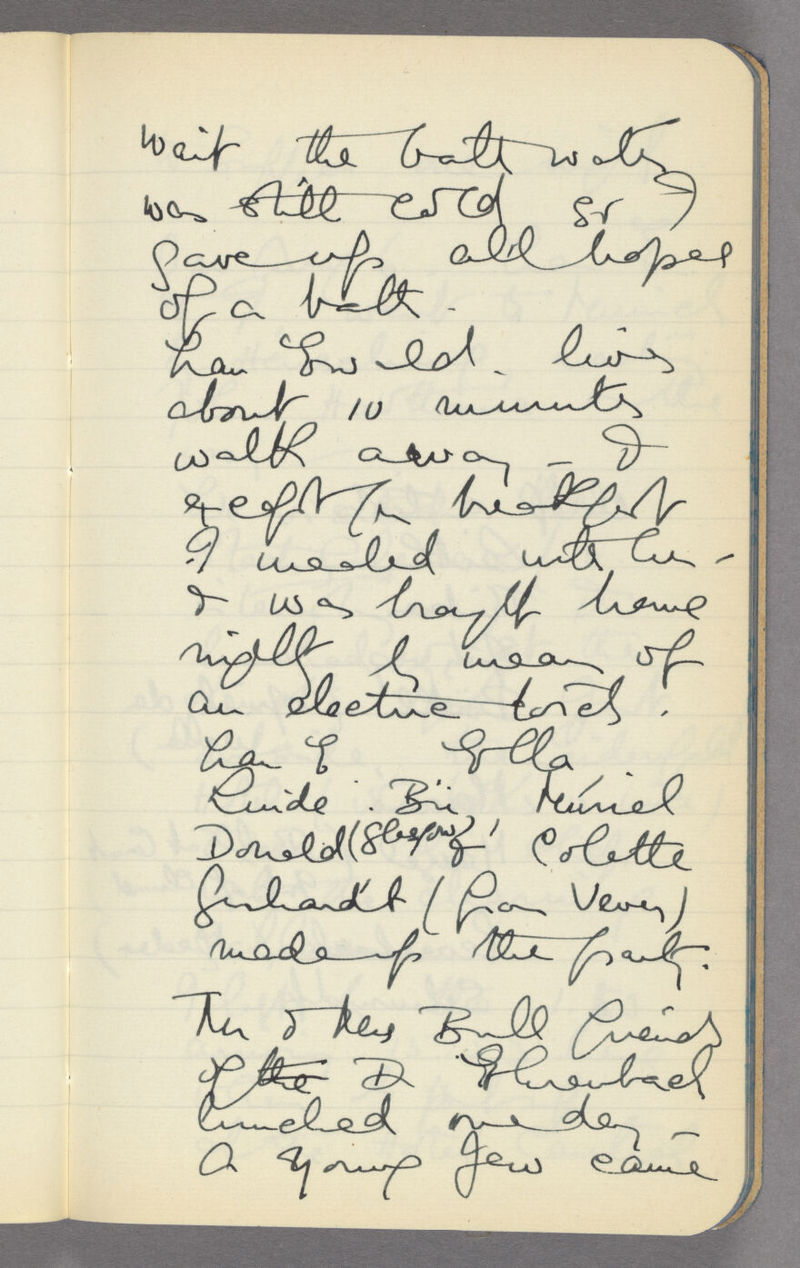 wait the bath water
was still cold so I
gave up all hopes
of a bath.
Frau Ewald. lives
about 10 minutes
walk away - &
except for breakfast
I mealed with her -
& was brought home
nightly by means of
an electric torch.
Frau E Ella
Luide. Muriel
Donald (Glasgow) Colette
Gerhardt (from Vevey)
made up the party.
Mr & Mrs Bull friends
of the Dr Ehrenbach
lunched one day -
A young Jew came